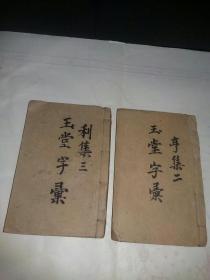 亨集二
玉堂字彙
利集三
玉堂字彙